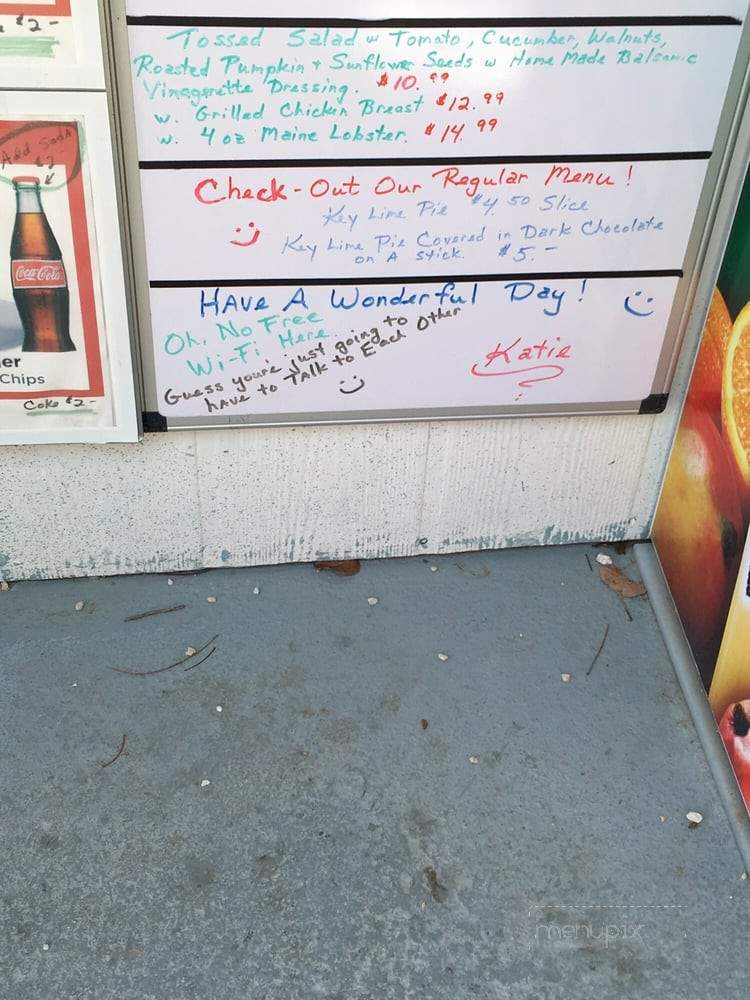 $2-
Tossed Salad w Tomato, Cucumber, Walnuts,
Roasted Pumpkin + Sunflower Seeds w Home Made Balsamic
Vinagerette Dressing. $10.99
w. Grilled Chicken Breast $12.99
w. 4 oz Maine Lobster. $14.99
Check-Out Our Regular Menu!
Key Lime Pie $4.50 Slice
Key Lime Pie Covered in Dark Chocolate
on A stick. $5.-
HAve A Wonderful Day!
Oh, No Free
Wi-Fi Here.
Guess you're just going to
have to TAlk to EAch Other
Katie
Add Soda
$2
Coca-Cola
er
Chips
Coke $2-
menupix